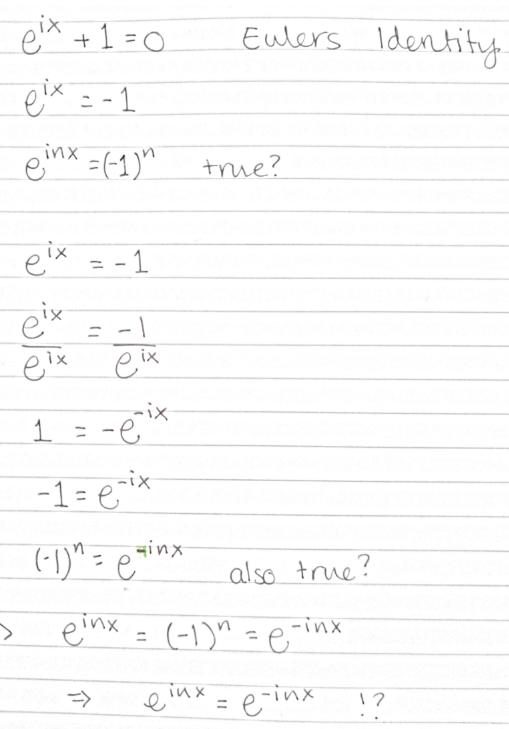 e^{ix} + 1 = 0 Eulers Identity
e^{ix} = -1
e^{inx} = (-1)^n true?
e^{ix} = -1
e^{ix}/e^{ix} = -1/e^{ix}
1 = -e^{-ix}
-1 = e^{-ix}
(-1)^n = e^{-inx} also true?
> e^{inx} = (-1)^n = e^{-inx}
⇒ e^{inx} = e^{-inx} !?